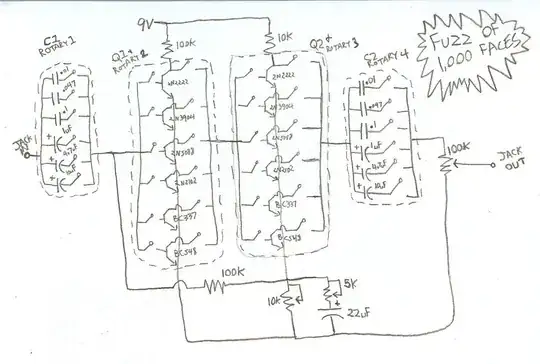 9V
FUZZ OF
1,000 FACES
C1
ROTARY 1
Q1 &
ROTARY 2
100K
10K
Q2 &
ROTARY 3
C2
ROTARY 4
.01
.047
.1
1uF
4.7uF
10uF
JACK
IN
2N2222
2N3904
2N5088
BC337
BC548
2N2222
2N3904
BC337
BC548
.01
.047
.1
1uF
4.7uF
10uF
100K
JACK
OUT
100K
10K
5K
22uF